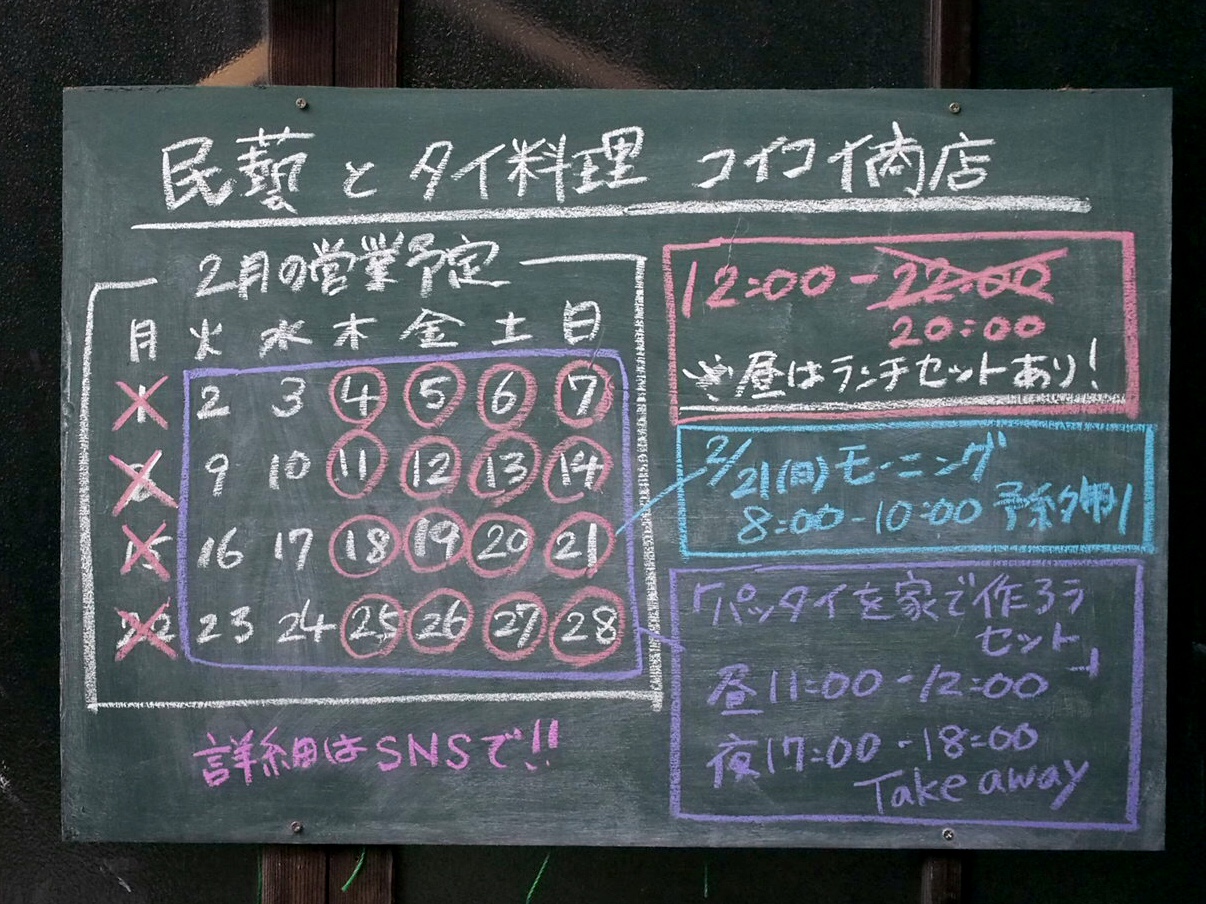 民藝とタイ料理 コイコイ商店
2月の営業予定
月 火 水 木 金 土 日
1 2 3 4 5 6 7
8 9 10 11 12 13 14
15 16 17 18 19 20 21
22 23 24 25 26 27 28
詳細はSNSで!!
12:00-22:00
20:00
※昼はランチセットあり!
2/21(日)モーニング
8:00-10:00 予約制!
「パッタイを家で作ろう
セット」
昼11:00-12:00
夜17:00-18:00
Take away